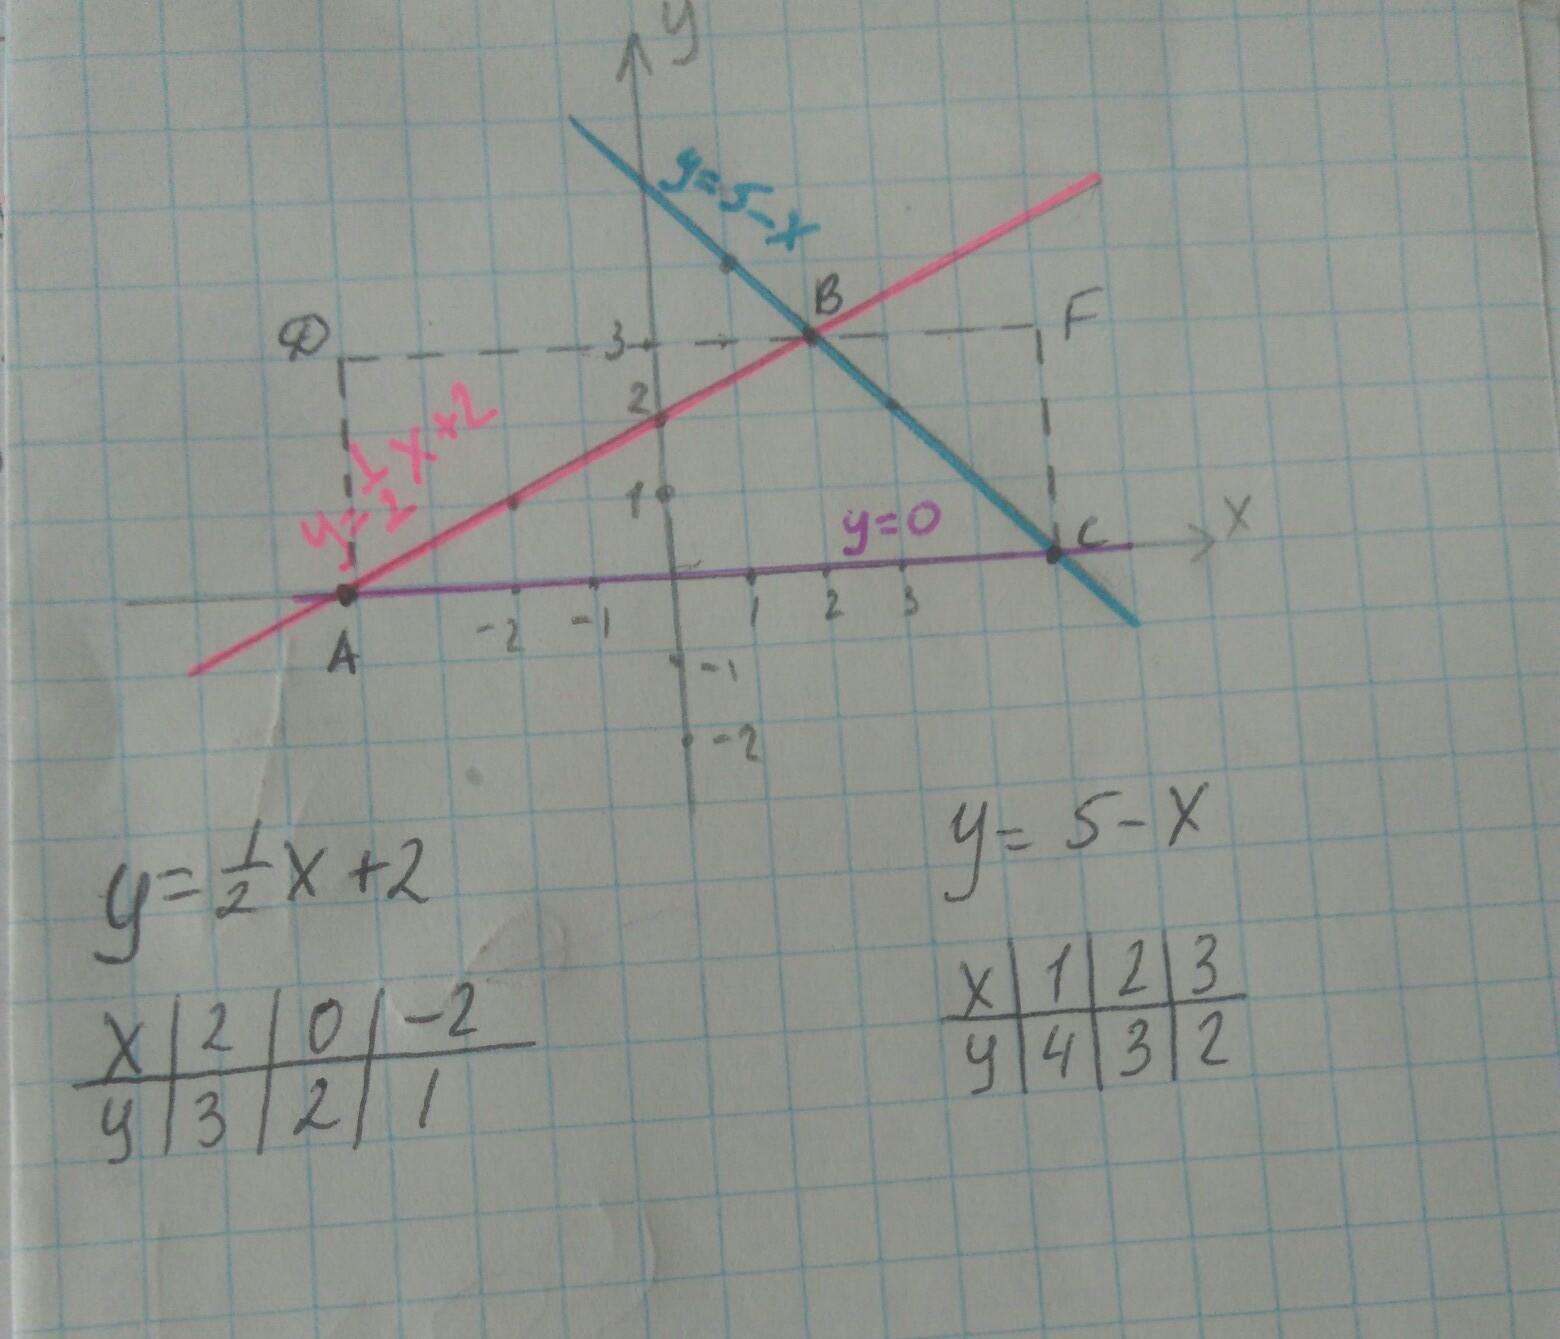 y
y=5-x
B
D
F
3
2
y=1/2x+2
1
y=0
x
C
-2 -1 1 2 3
A
-1
-2
y=1/2x+2
y=5-x
x | 2 | 0 | -2
y | 3 | 2 | 1
x | 1 | 2 | 3
y | 4 | 3 | 2